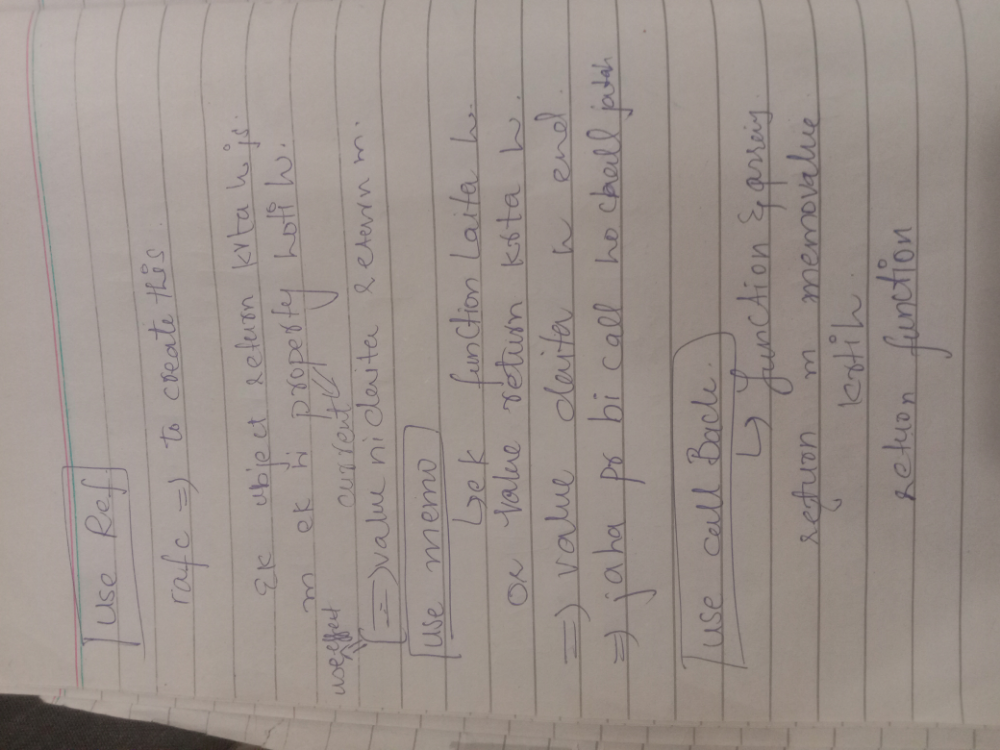 Use Ref
rafc => to create this
Ek object return krta h js
m ek hi property hoti h.
current
useEffect
=> value ni deita return m.
Use memo
↳ ek function laita h.
or value return krta h.
=> value deita h end.
=> jaha pr bi call ho call jatah
use call Back.
↳ function & passing
return m memovalue
krtih
return function